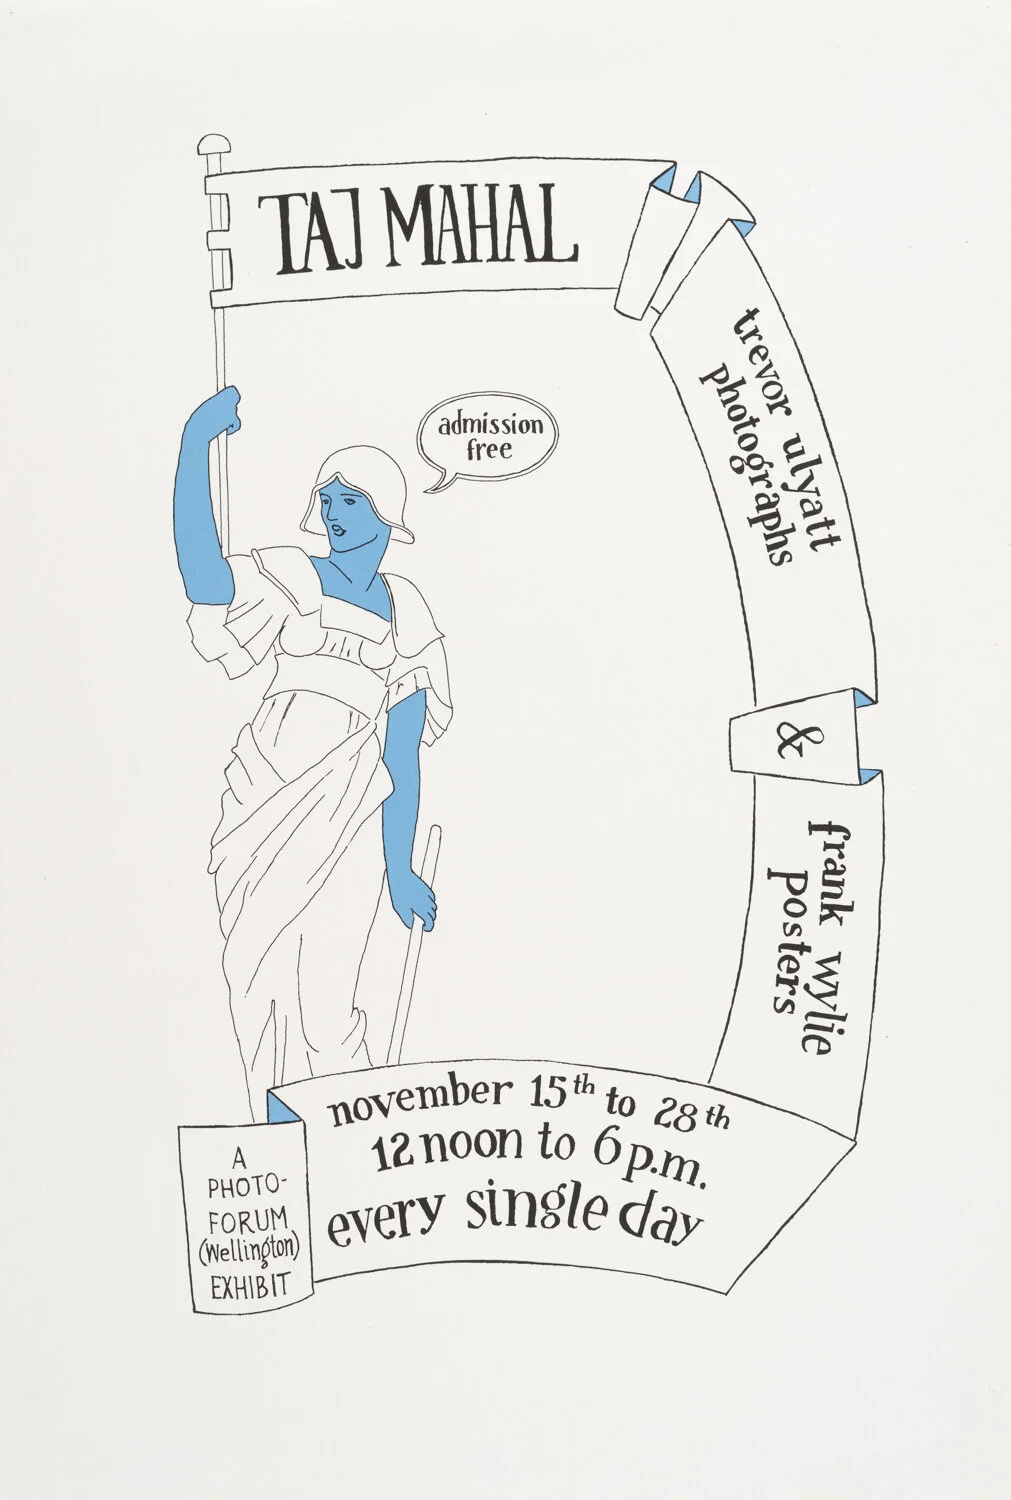 TAJ MAHAL
admission
free
trevor ulyatt
photographs
&
frank wylie
posters
november 15th to 28th
12 noon to 6 p.m.
every single day
A
PHOTO-
FORUM
(Wellington)
EXHIBIT